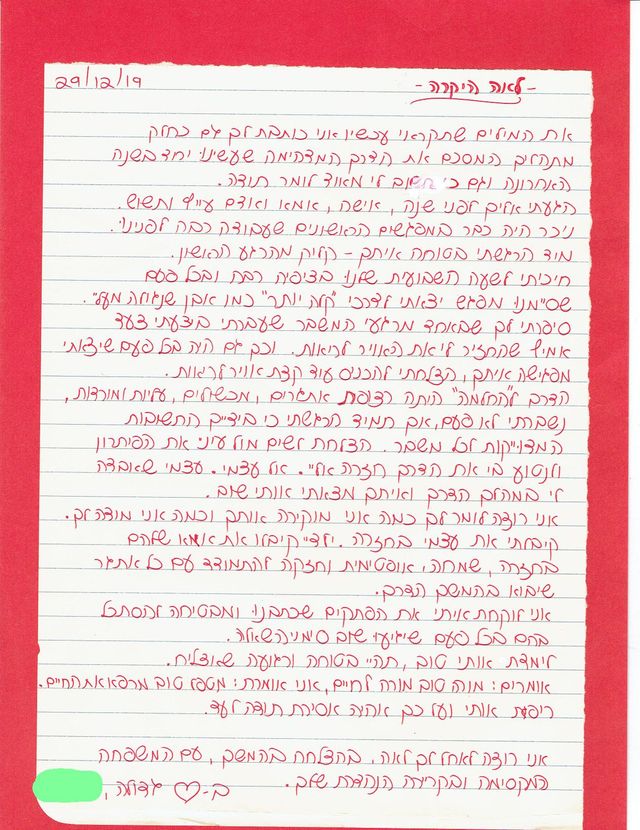 29/12/19
- לאה היקרה -
את המילים שתקראי עכשיו אני כותבת לך גם כחלק
מתהליך המסכם את הדרך המדהימה שעשינו יחד בשנה
האחרונה וגם כי חשוב לי מאוד לומר תודה.
הגעתי אלייך לפני שנה, אישה, אמא ואדם עייף ותשוש.
ניכר היה כבר במפגשים הראשונים שעבודה רבה לפנינו.
מיד הרגשתי בטוחה איתך - קליק מהרגע הראשון.
חיכיתי לשעה השבועית שלנו בציפיה רבה ובכל פעם
שסיימנו מפגש יצאתי לדרכי "קלה יותר" כמו אבן שנגולה מעליי.
סיפרתי לך שבאחד מרגעי המשבר שעברתי ביצעתי צעד
אמיץ שהחזיר לי את האוויר לריאות. וכך גם היה בכל פעם שיצאתי
מפגישה איתך, הצלחתי להכניס עוד קצת אוויר לריאות.
הדרך ל"החלמה" היתה רצופת אתגרים, מכשולים, עליות ומורדות,
נשברתי לא פעם, אך תמיד הרגשתי כי בידייך התשובות
המדוייקות לכל משבר. הצלחת לשים מול עיניי את הפיתרון
ולנטוע בי את הדרך חזרה אליי. אל עצמי. עצמי שאבדה
לי במהלך הדרך ואיתך מצאתי אותי שוב.
אני רוצה לומר לך כמה אני מוקירה אותך וכמה אני מודה לך.
קיבלתי את עצמי בחזרה. ילדיי קיבלו את אמא שלהם
בחזרה, שמחה, אופטימית וחזקה להתמודד עם כל אתגר
שיבוא בהמשך הדרך.
אני לוקחת איתי את הפתקים שכתבנו ומבטיחה להסתכל
בהם בכל פעם שיגיעו שוב סימני השאלה.
לימדת אותי טוב, תהיי בטוחה ורגועה שאצליח.
אומרים: מורה טוב מורה לחיים, אני אומרת: מטפל טוב מרפא את החיים.
ריפאת אותי ועל כך אהיה אסירת תודה לעד.
אני רוצה לאחל לך לאה, בהצלחה בהמשך, עם המשפחה
המקסימה ובקריירה הנהדרת שלך.
ב-♡ גדולה,